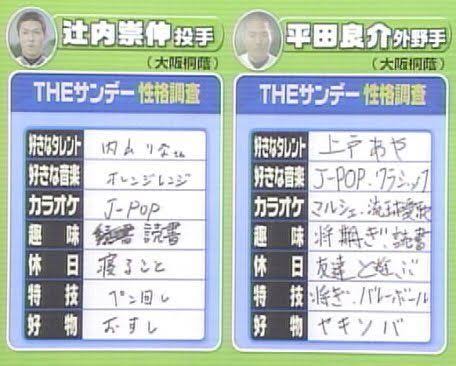 辻内崇伸投手
(大阪桐蔭)
THEサンデー 性格調査
好きなタレント 内山りなさん
好きな音楽 オレンジレンジ
カラオケ J-POP
趣味 読書
休日 寝ること
特技 ペン回し
好物 おすし
平田良介外野手
(大阪桐蔭)
THEサンデー 性格調査
好きなタレント 上戸あや
好きな音楽 J-POP.クラシック
カラオケ マルシェ.流球愛歌
趣味 将ぎ.読書
休日 友達と遊ぶ
特技 将ぎ.バレーボール
好物 ヤキソバ